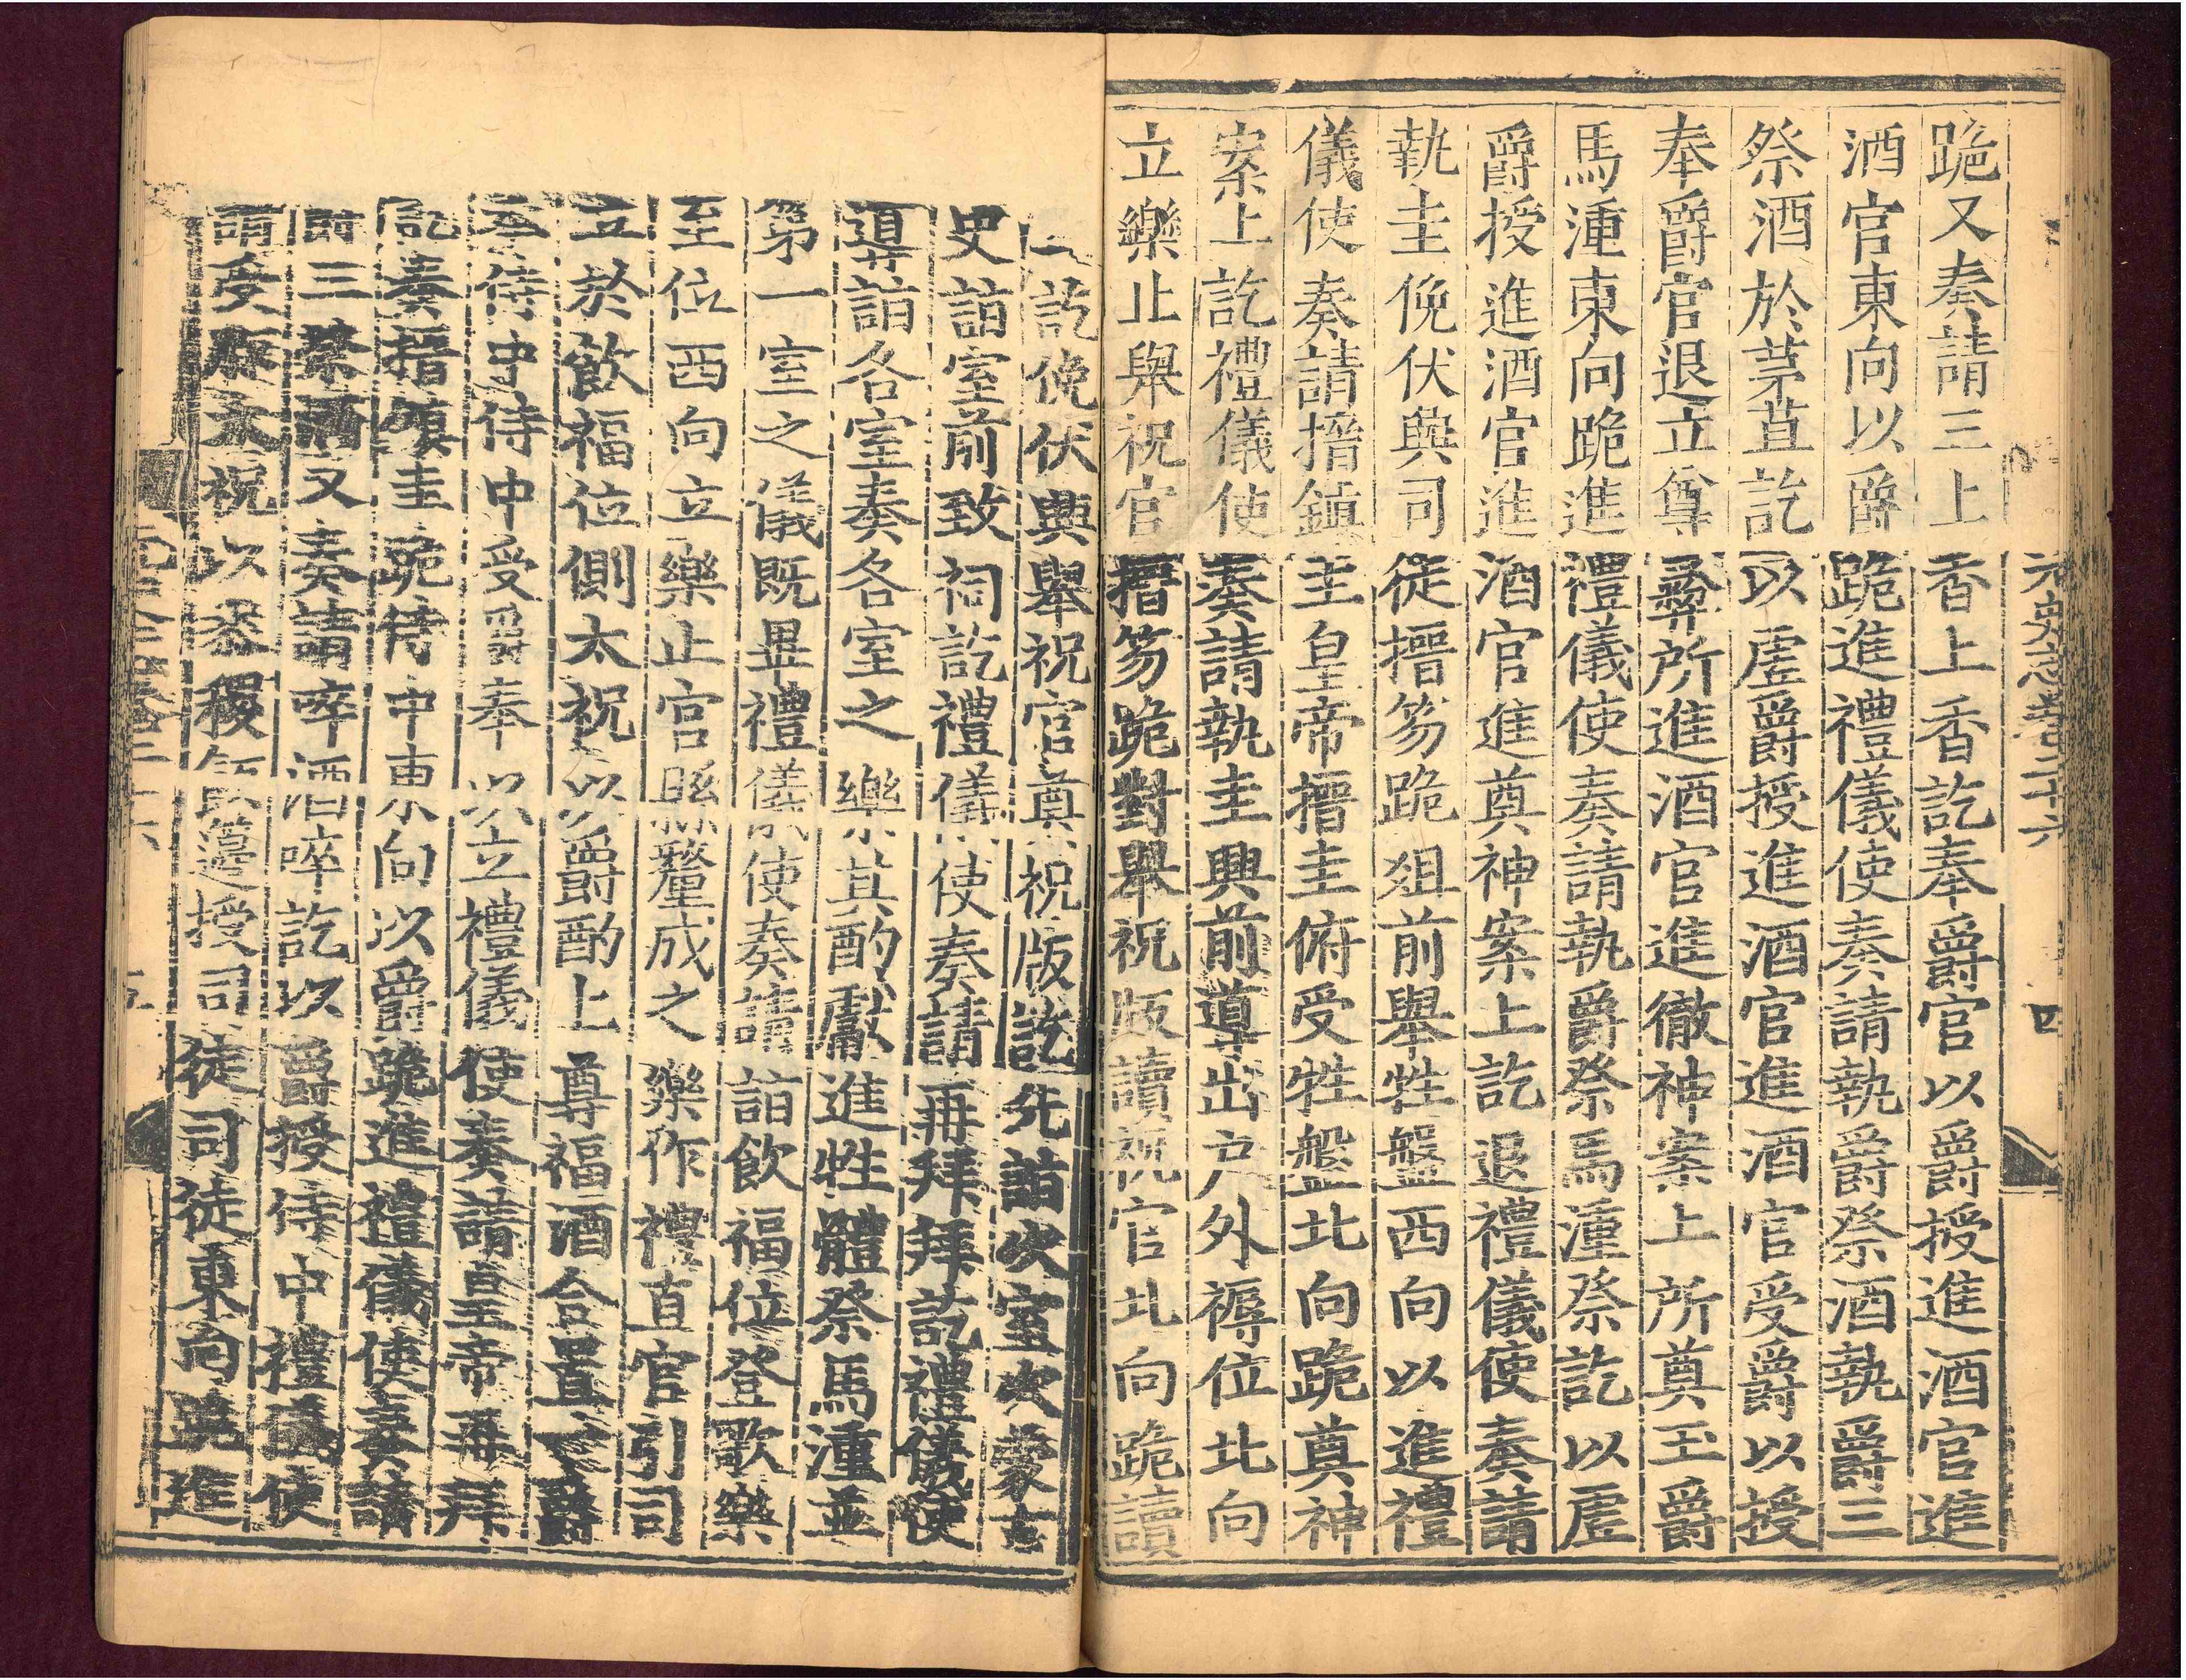 元史志卷二十六 四
跪又奏請三上香上香訖奉爵官以爵授進酒官進
酒官東向以爵跪進禮儀使奏請執爵祭酒執爵三
祭酒於茅苴訖以虛爵授進酒官進酒官受爵以授
奉爵官退立尊彝所進酒官進徹神案上所奠玉爵
馬湩東向跪進禮儀使奏請執爵祭馬湩祭訖以虛
爵授進酒官進酒官進奠神案上訖退禮儀使奏請
執圭俛伏興司徒搢笏跪俎前舉牲盤西向以進禮
儀使奏請搢鎮圭皇帝搢圭俯受牲盤北向跪奠神
案上訖禮儀使奏請執圭興前導出户外褥位北向
立樂止舉祝官搢笏跪對舉祝版讀祝官北向跪讀
訖俛伏興舉祝官奠祝版訖先詣次室次蒙古
史詣室前致祠訖禮儀使奏請再拜拜訖禮儀使
導詣各室奏各室之樂其酌獻進牲體祭馬湩並
第一室之儀既畢禮儀使奏請詣飲福位登歌樂
至位西向立樂止宮縣釐成之樂作禮直官引司
立於飲福位側太祝以爵酌上尊福酒合置一爵
奉侍中侍中受爵奉以立禮儀使奏請皇帝再拜
訖奏搢鎮圭跪侍中東向以爵跪進禮儀使奏請
爵三祭酒又奏請啐酒啐訖以爵授侍中禮儀使
請受胙太祝以黍稷飯籩授司徒司徒東向跪進